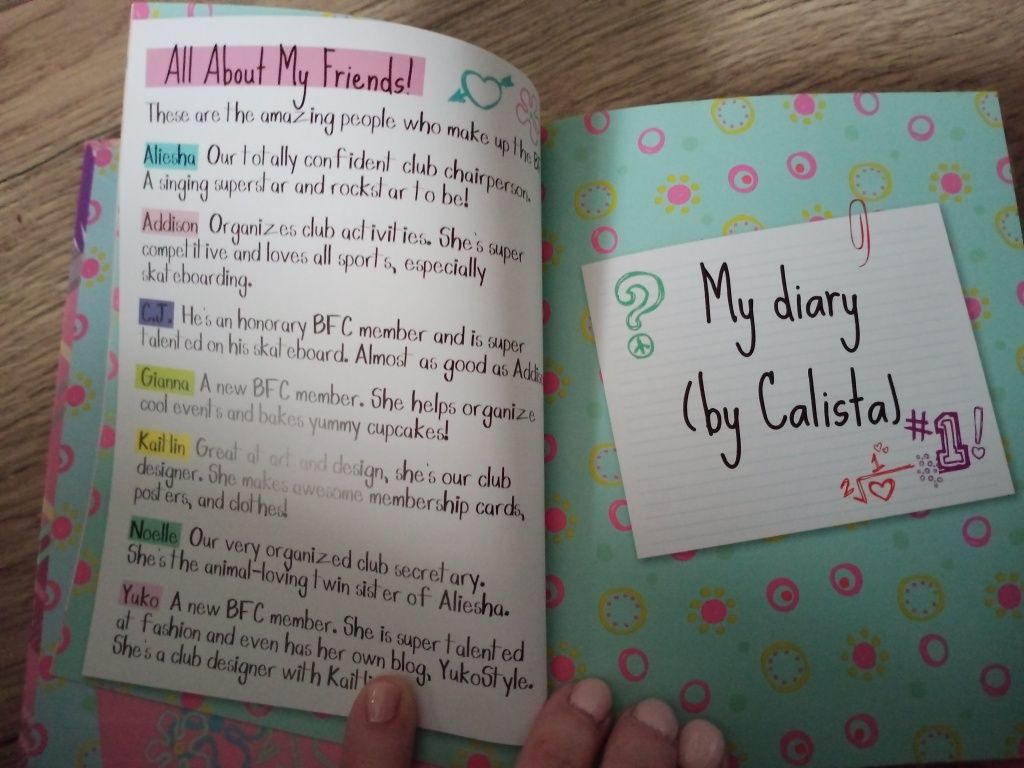 All About My Friends!
These are the amazing people who make up the
Aliesha Our totally confident club chairperson.
A singing superstar and rockstar to be!
Addison Organizes club activities. She's super
competitive and loves all sports, especially
skateboarding.
C.J. He's an honorary BFC member and is super
talented on his skateboard. Almost as good as
Gianna A new BFC member. She helps organize
cool events and bakes yummy cupcakes!
Kaitlin Great at art and design, she's our club
designer. She makes awesome membership cards,
posters, and clothes!
Noelle Our very organized club secretary.
She's the animal-loving twin sister of Aliesha.
Yuko A new BFC member. She is super talented
at fashion and even has her own blog, YukoStyle.
She's a club designer with
My diary
(by Calista)
#1!
1
2√